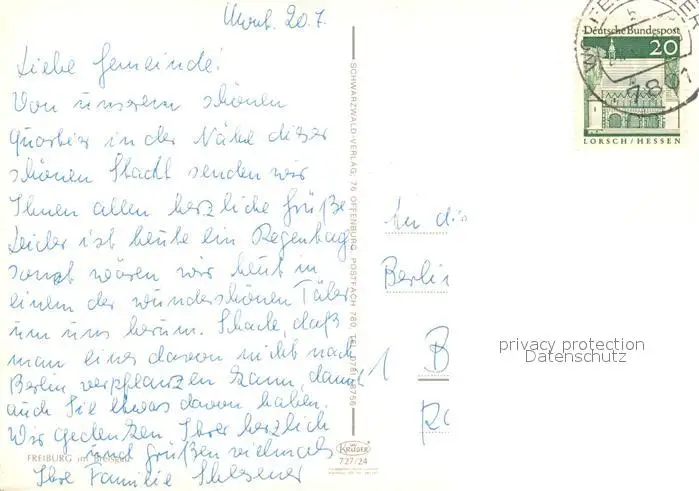 20.7.
Liebe Gemeinde!
Von unserem schönen
Quartier in der Nähe dieser
schönen Stadt senden wir
Ihnen allen herzliche Grüße
Leider ist heute ein Regentag
sonst wären wir heut in
einem der wunderschönen Täler
um uns herum. Schade, daß
man eines davon nicht nach
Berlin verpflanzen kann, damit
auch Sie etwas davon haben.
Wir gedenken Ihrer herzlich
und grüßen vielmals
Ihre Familie
FREIBURG im Breisgau
SCHWARZWALD-VERLAG, 76 OFFENBURG, POSTFACH 780, TEL.
KRÜGER
727/24
Deutsche Bundespost
20
LORSCH/HESSEN
7801
An die
Berlin
1 B
privacy protection
Datenschutz